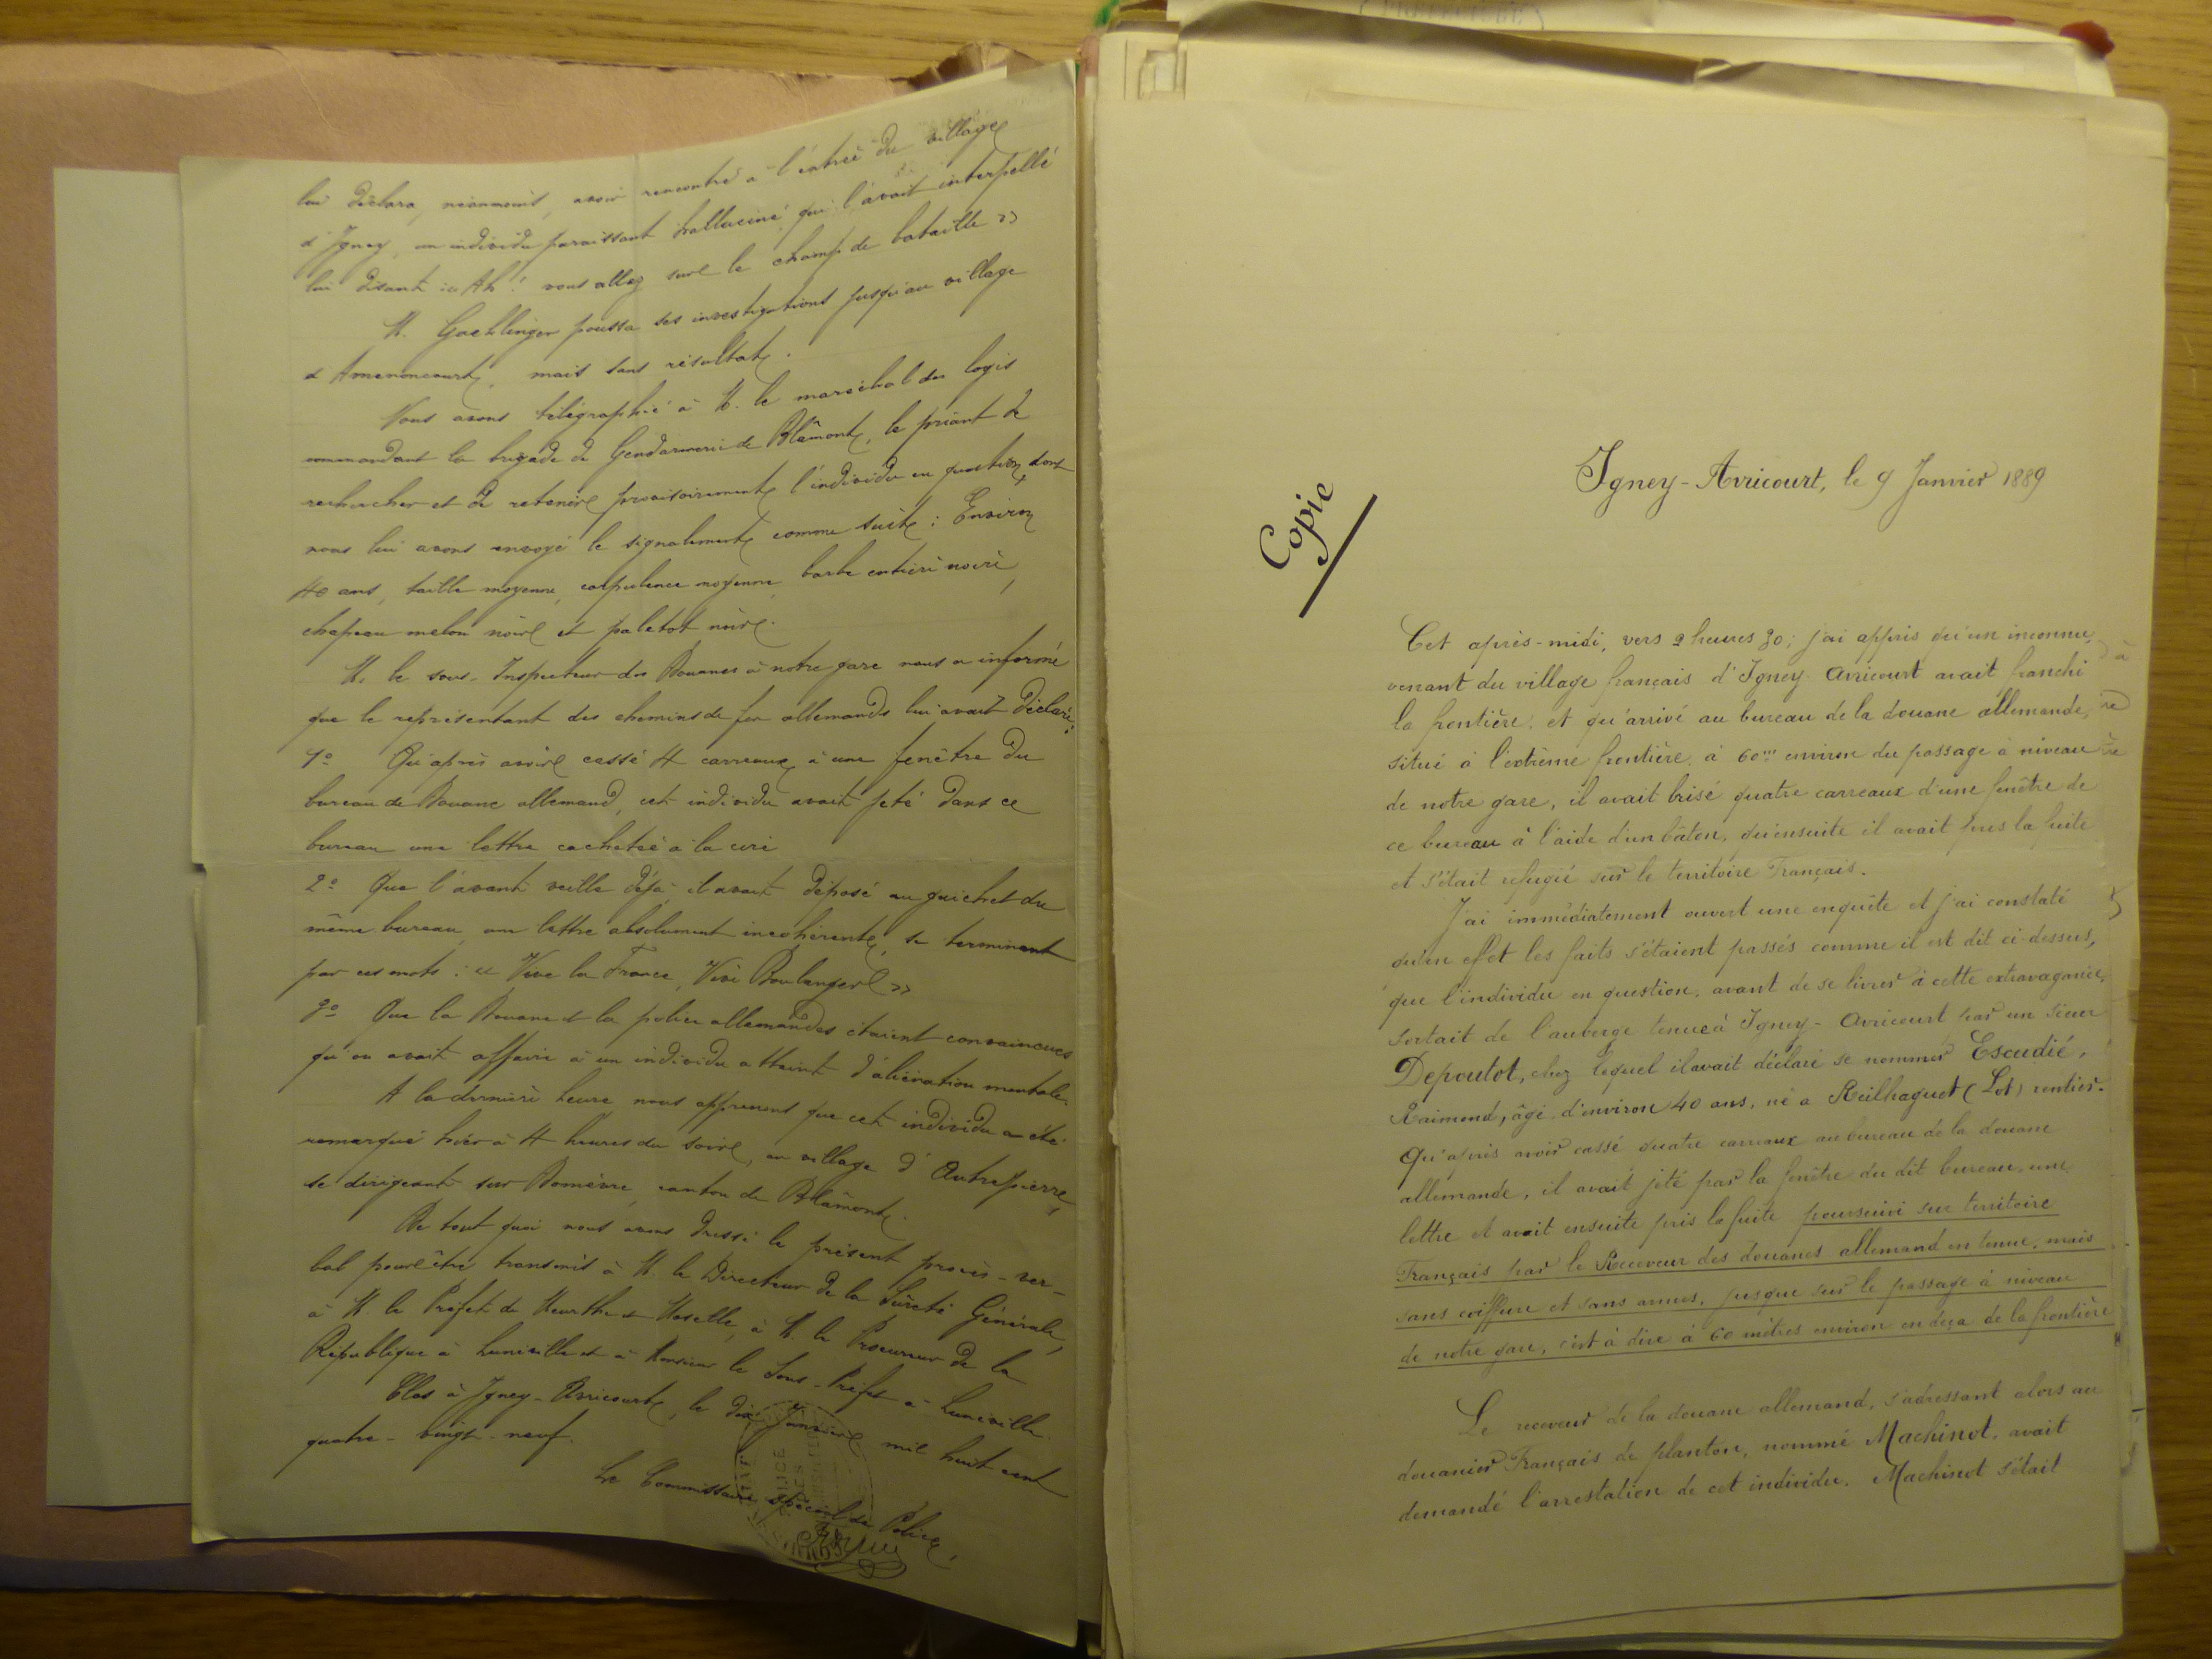 lui déclara, néanmoins, avoir rencontré à l'entrée du village
d'Igney, un individu paraissant halluciné qui l'avait interpellé
lui disant « Ah ! vous allez sur le champ de bataille »
M. Gaehlinger poussa ses investigations jusqu'au village
d'Amenoncourt, mais sans résultat.
Nous avons télégraphié à M. le maréchal des logis
commandant la brigade de Gendarmerie de Blâmont, le priant de
rechercher et de retenir provisoirement l'individu en question, dont
nous lui avons envoyé le signalement comme suit : Environ
40 ans, taille moyenne, corpulence moyenne, barbe entière noire,
chapeau melon noir et paletot noir.
M. le sous-Inspecteur des Douanes à notre gare nous a informé
que le représentant des chemins de fer allemands lui avait déclaré :
1º Qu'après avoir cassé 4 carreaux à une fenêtre du
bureau de Douane allemand, cet individu avait jeté dans ce
bureau une lettre cachetée à la cire
2º Que l'avant veille déjà il avait déposé au guichet du
même bureau, une lettre absolument incohérente, se terminant
par ces mots : « Vive la France, Vive Boulanger »
3º Que la Douane et la police allemandes étaient convaincues
qu'on avait affaire à un individu atteint d'aliénation mentale.
A la dernière heure nous apprenons que cet individu a été
remarqué hier à 4 heures du soir, au village d'Autrepierre,
se dirigeant sur Domèvre, canton de Blâmont.
De tout quoi nous avons dressé le présent procès-ver-
bal pour être transmis à M. le Directeur de la Sûreté Générale,
à M. le Préfet de Meurthe et Moselle, à M. le Procureur de la
République à Lunéville et à Monsieur le Sous-Préfet à Lunéville.
Clos à Igney-Avricourt, le dix Janvier mil huit cent
quatre-vingt-neuf.
Le Commissaire spécial de Police,
Copie
Igney-Avricourt, le 9 Janvier 1889
Cet après-midi, vers 2 heures 30, j'ai appris qu'un inconnu,
venant du village français d'Igney-Avricourt avait franchi
la frontière, et qu'arrivé au bureau de la douane allemande,
situé à l'extrême frontière, à 60m environ du passage à niveau
de notre gare, il avait brisé quatre carreaux d'une fenêtre de
ce bureau à l'aide d'un bâton, qu'ensuite il avait pris la fuite
et s'était refugié sur le territoire Français.
J'ai immédiatement ouvert une enquête et j'ai constaté
qu'en effet les faits s'étaient passés comme il est dit ci-dessus,
que l'individu en question, avant de se livrer à cette extravagance,
sortait de l'auberge tenue à Igney-Avricourt par un sieur
Depoutot, chez lequel il avait déclaré se nommer Escudié,
Raimond, âgé d'environ 40 ans, né à Reilhaguet (Lot) rentier.
Qu'après avoir cassé quatre carreaux au bureau de la douane
allemande, il avait jeté par la fenêtre du dit bureau, une
lettre et avait ensuite pris la fuite poursuivi sur territoire
Français par le Receveur des douanes allemand en tenue, mais
sans coiffure et sans armes, jusque sur le passage à niveau
de notre gare, c'est à dire à 60 mètres environ en deça de la frontière
Le receveur de la douane allemand, s'adressant alors au
douanier Français de planton, nommé Machinot, avait
demandé l'arrestation de cet individu. Machinot s'était